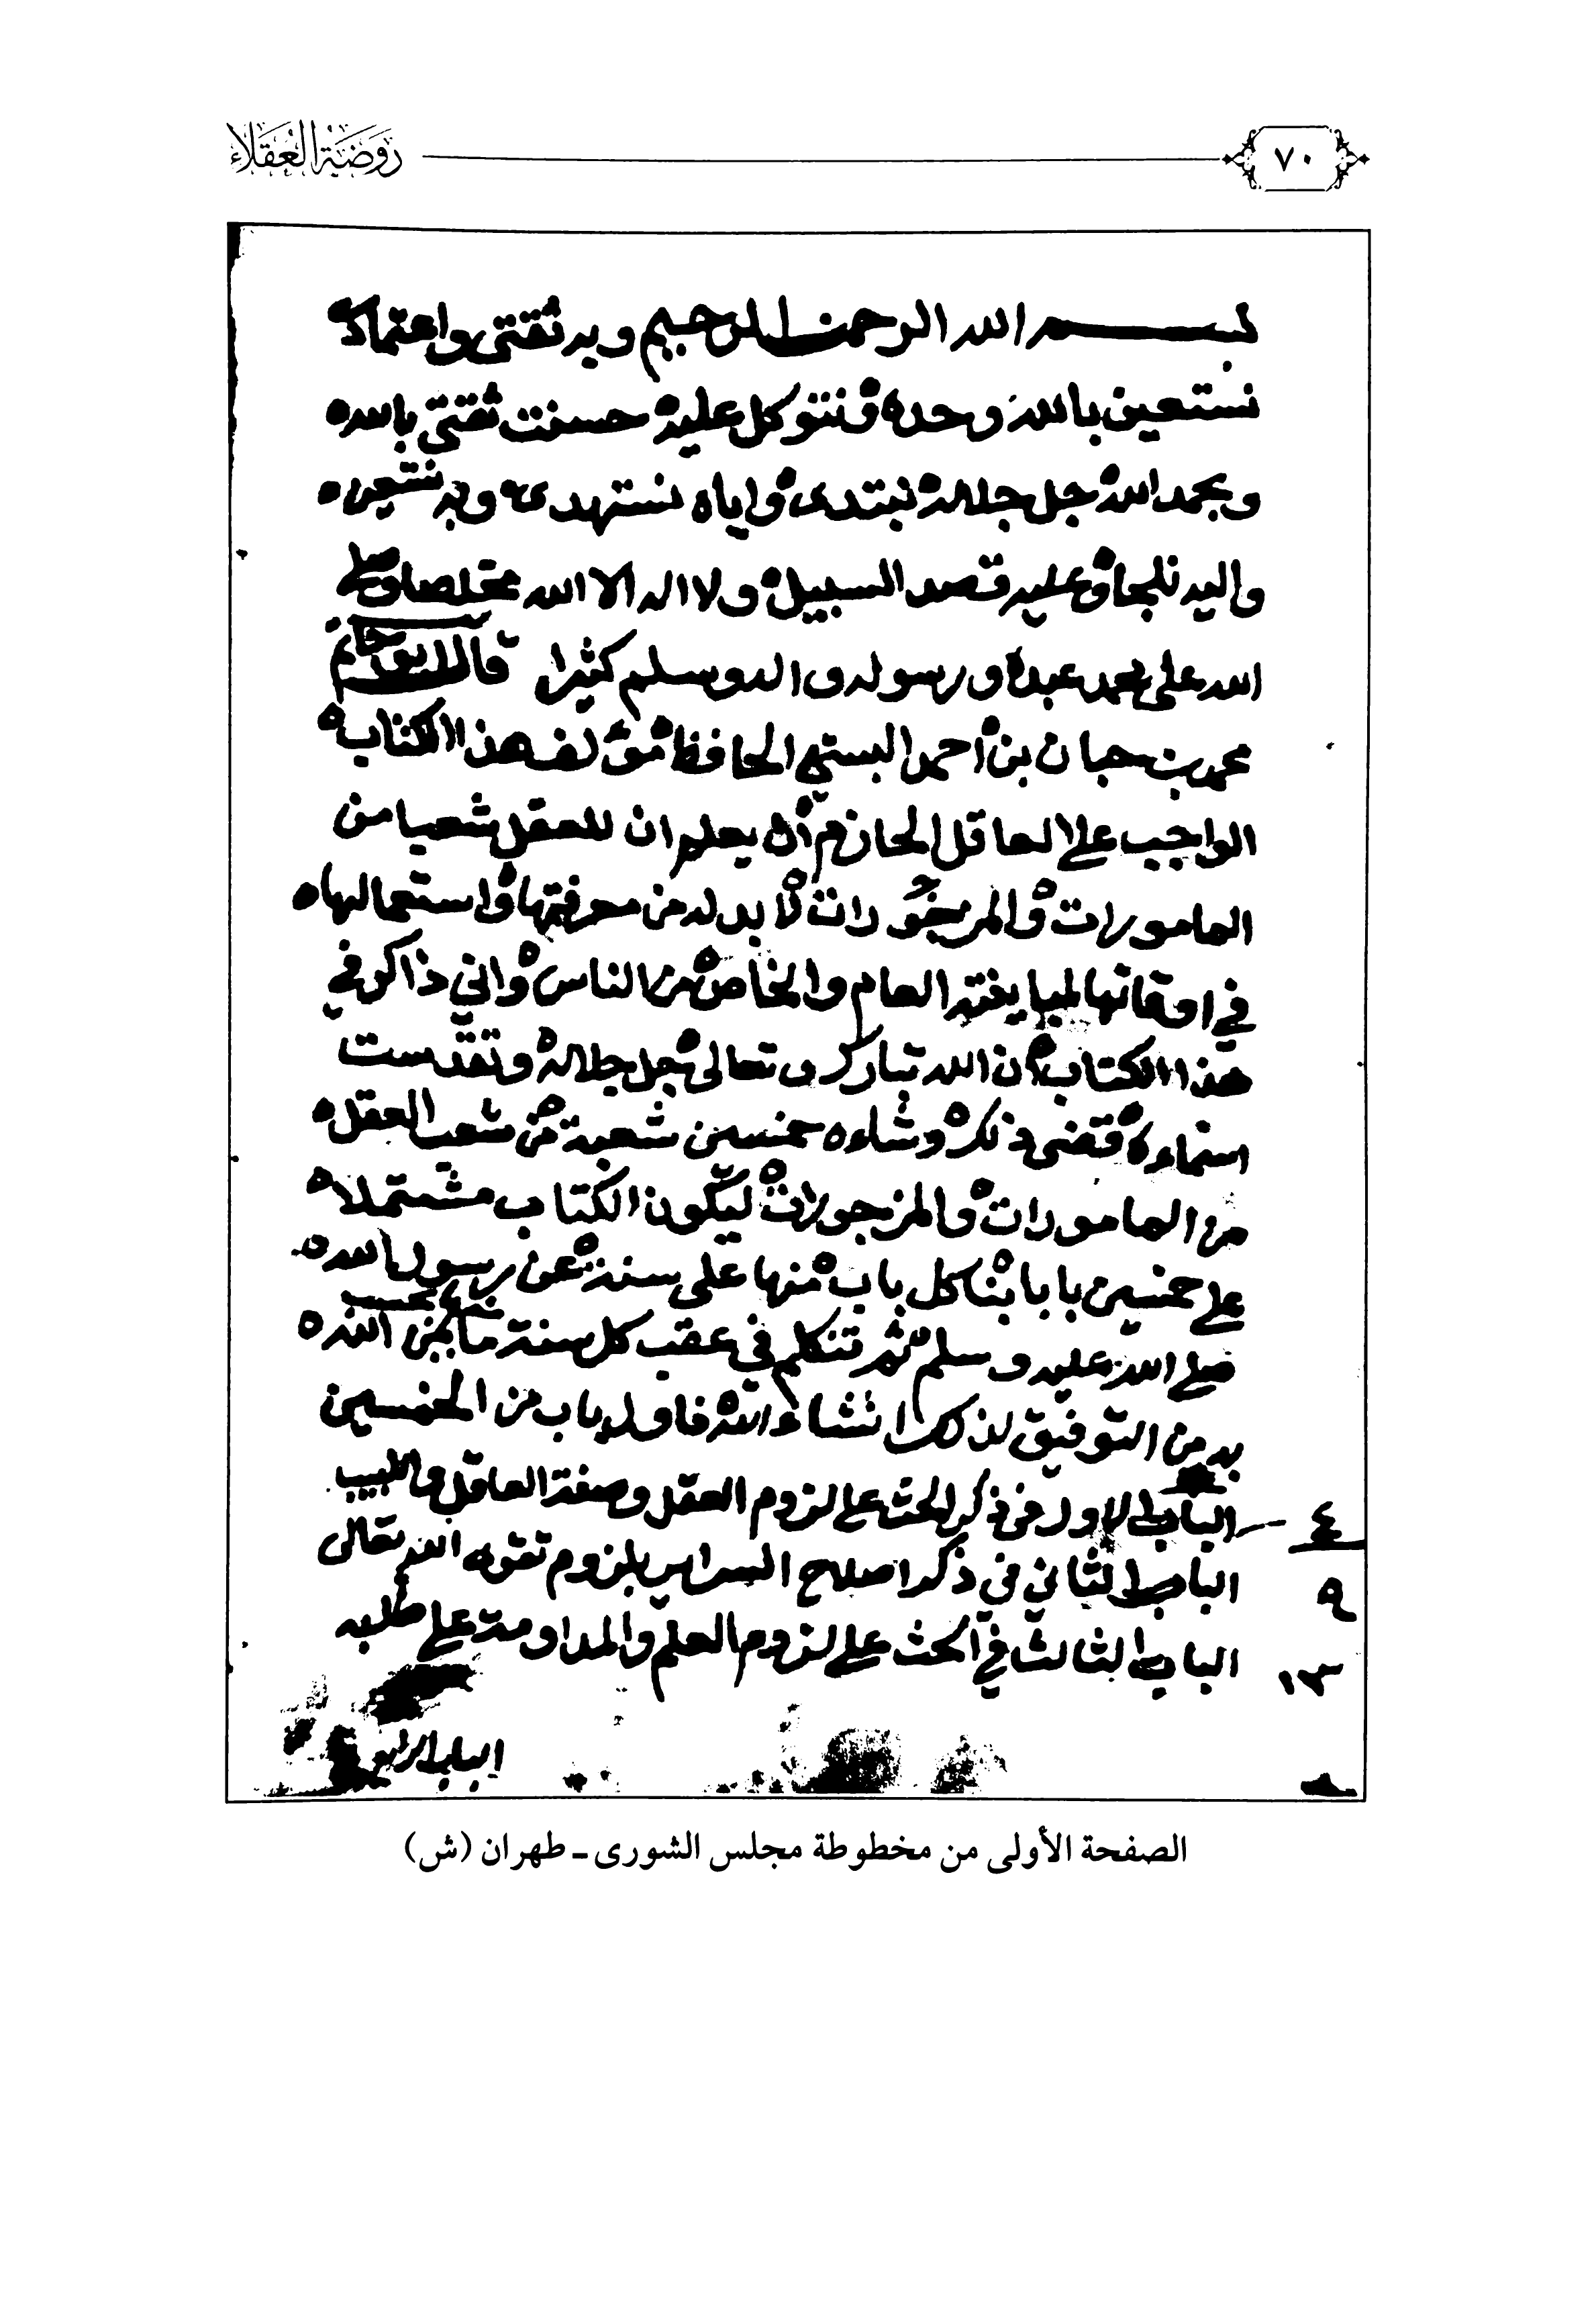 ٧٠
روضة العقلاء
بسم الله الرحمن الرحيم وبه ثقتي واعتمادي
نستعين بالله وحده ونتوكل عليه حسنت ثقتي بالله
وبحمد الله جل جلاله نبتدى واياه نستهدى وبه نستعين
واليه نلجا وعليه قصد السبيل ولا اله الا الله مخلصا وصلى
الله على محمد عبده ورسوله واله وسلم كثيرا قال ابو حاتم
محمد بن حبان بن احمد البستي الحافظ مؤلف هذا الكتاب
الواجب على العاقل الحازم أن يعلم ان للعقل شعبا من
المامورات والمزجورات لا بد له من معرفتها واستعمالها
في اوقاتها العام والخاص من الناس واني ذاكر في
هذا الكتاب ان الله تبارك وتعالى جل جلاله وتقدست
اسماءه قضى ذلك وشاءه خمسين شعبة من شعب العقل
من المامورات والمزجورات ليكون الكتاب مشتملا
على خمسين بابا بنا كل باب منها على سنة عن رسول الله
صلى الله عليه وسلم ثم نتكلم في عقب كل سنة منها بحسب ما يمن الله
به من التوفيق لذلك انشاء الله فاول باب من الخمسين
٤ الباب الاول في ذكر الحث على لزوم العقل وصفة العاقل واللبيب
٩ الباب الثاني في ذكر اصلاح السراير بلزوم تقوى الله تعالى
١٣ الباب الثالث في الحث على لزوم العلم والمداومة على طلبه
الباب الرابع
الصفحة الأولى من مخطوطة مجلس الشورى ـ طهران (ش)